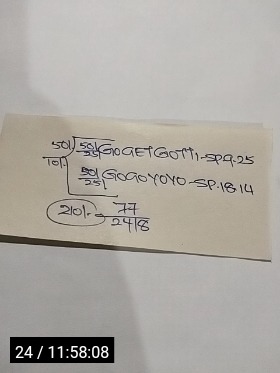 50/ 50/25/ GOGETGOTTI-SP.9.25
10/. 50/25/ GOGOYOYO-SP.18.14
210/- 77
2418
24 / 11:58:08